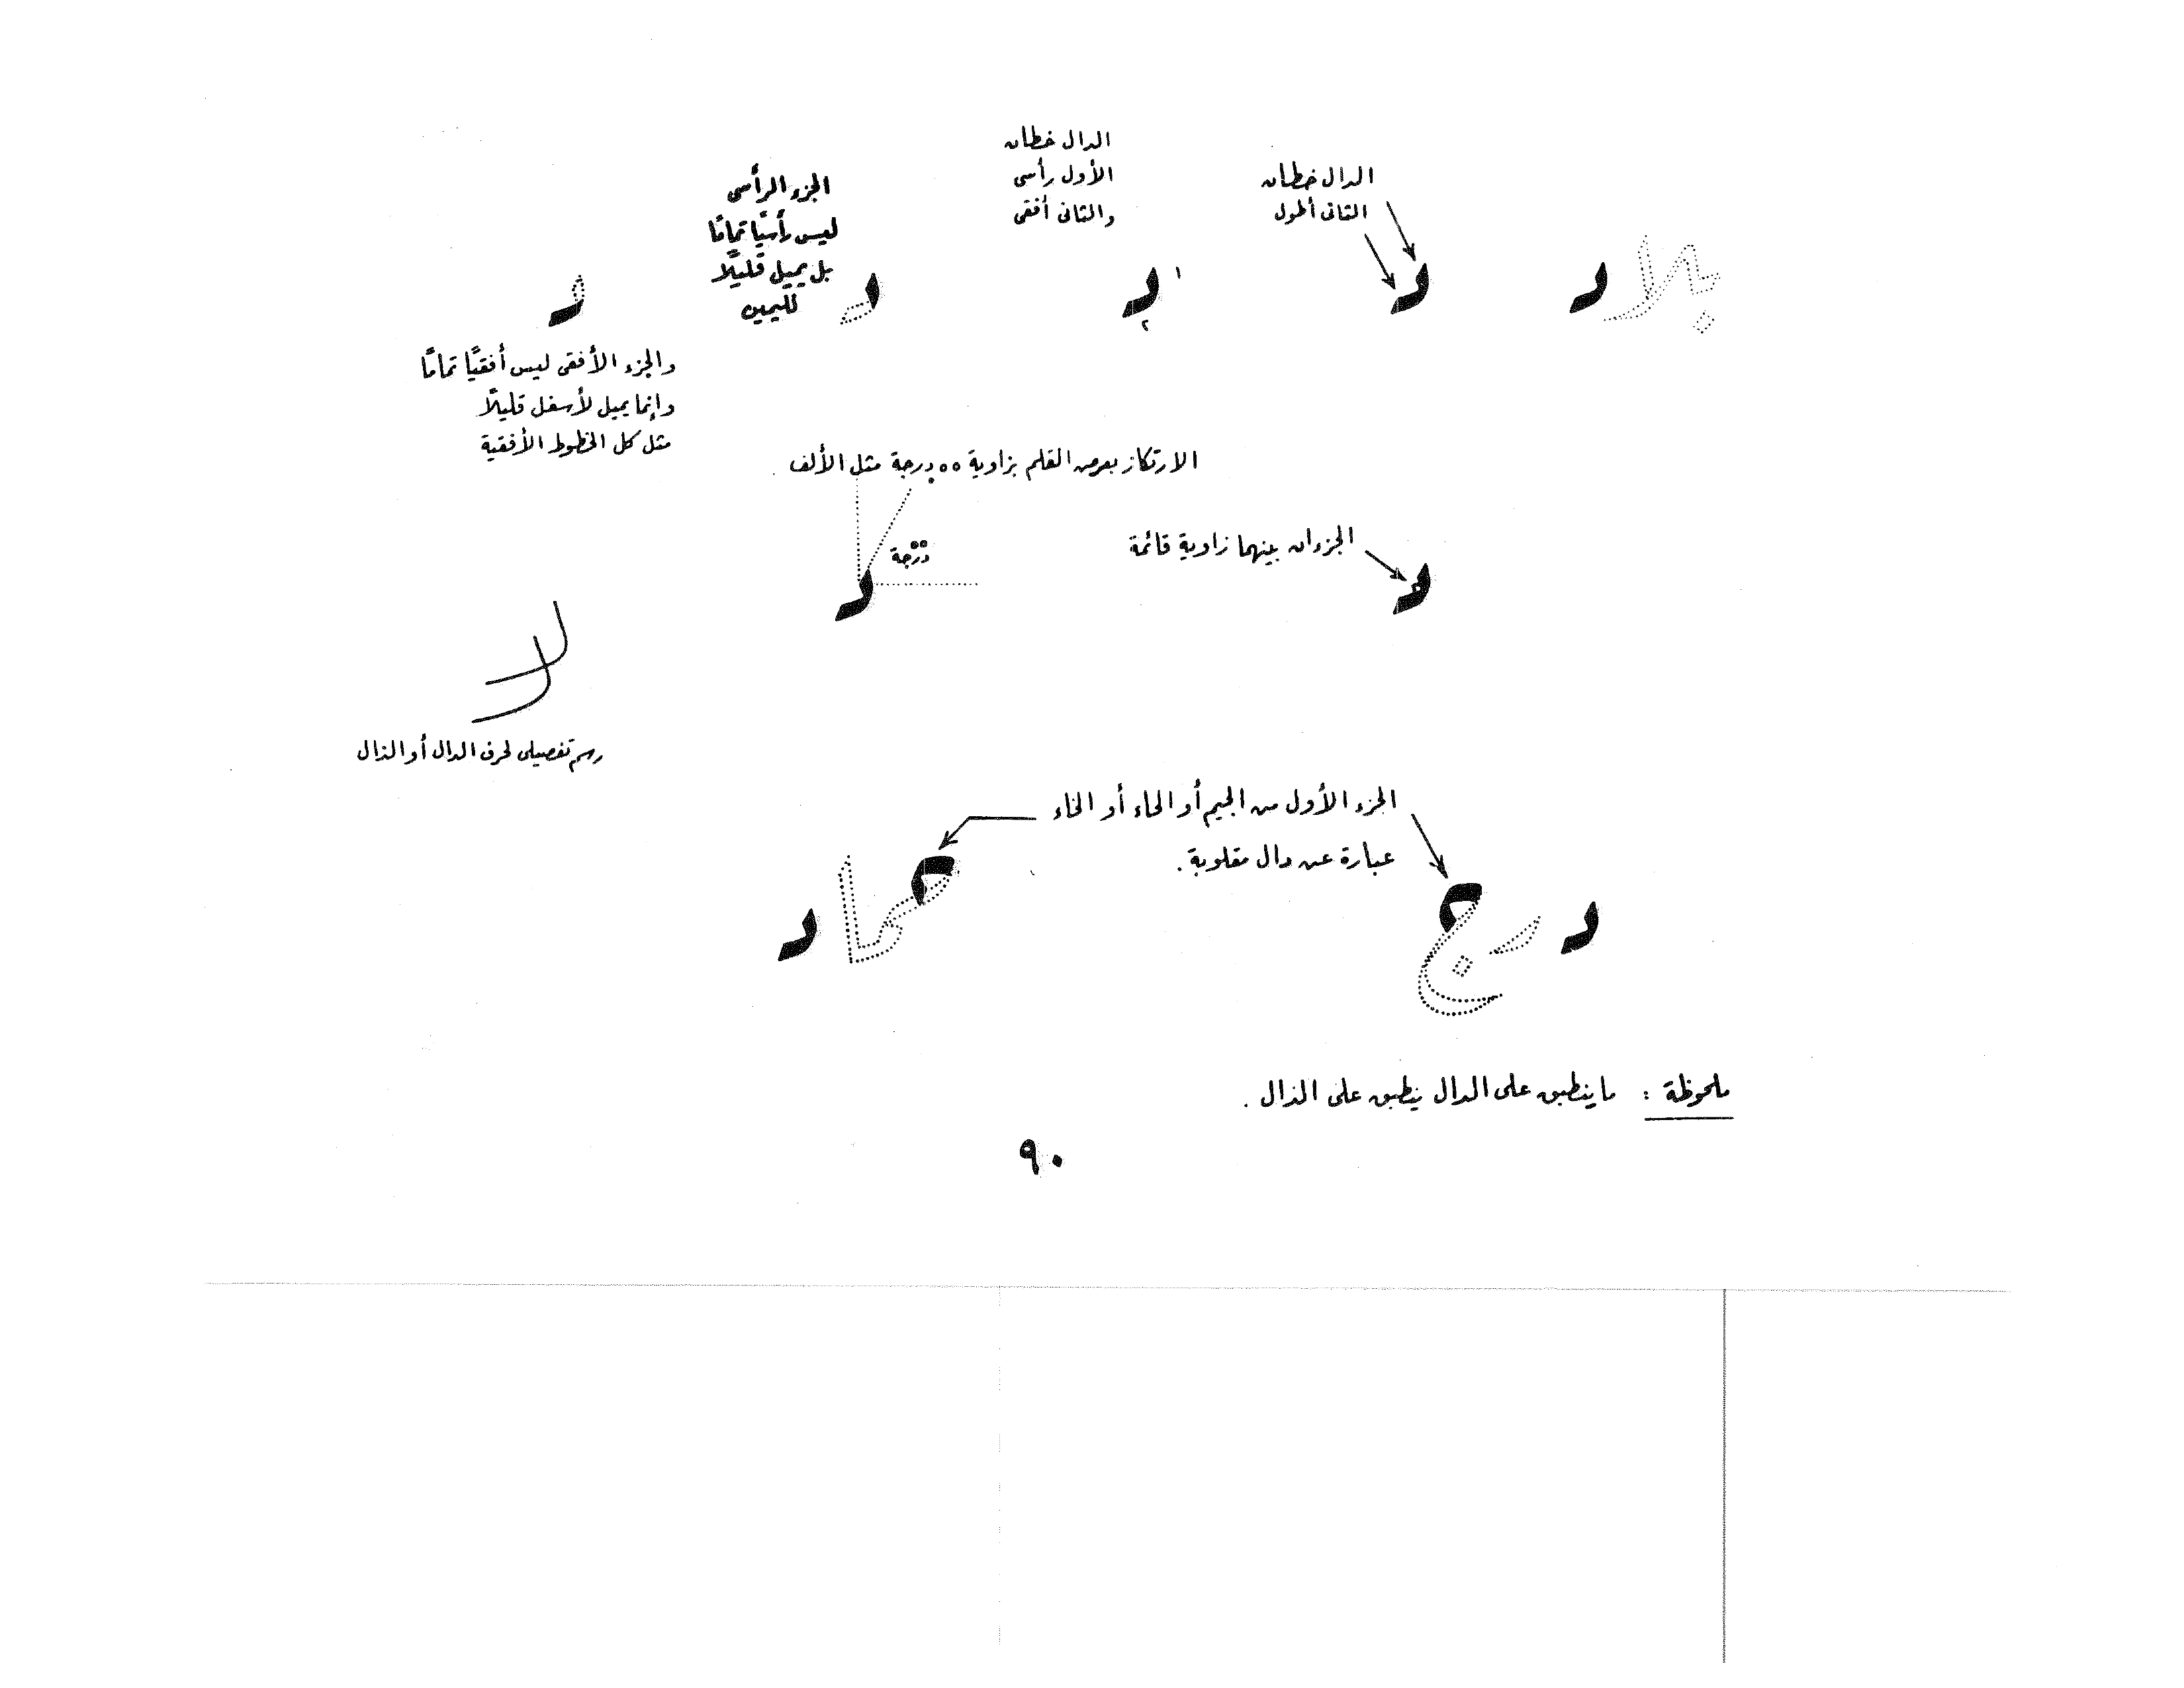 الدال خطان
الثانى أطول
الدال خطان
الأول رأسى
والثانى أفقى
الجزء الرأسى
ليس رأسيًا تمامًا
بل يميل قليلًا
لليمين
بلاد
د
١ د ٢
د
د
والجزء الأفقى ليس أفقيًا تمامًا
وإنما يميل لأسفل قليلًا
مثل كل الخطوط الأفقية
الارتكاز بعرض القلم بزاوية ٥٥ درجة مثل الألف
الجزءان بينهما زاوية قائمة
٥٥ درجة
د
د
رسم تفصيلى لحرف الدال أو الذال
الجزء الأول من الجيم أو الحاء أو الخاء
عبارة عن دال مقلوبة .
درج
حماد
ملحوظة : ما ينطبق على الدال ينطبق على الذال .
٩٠